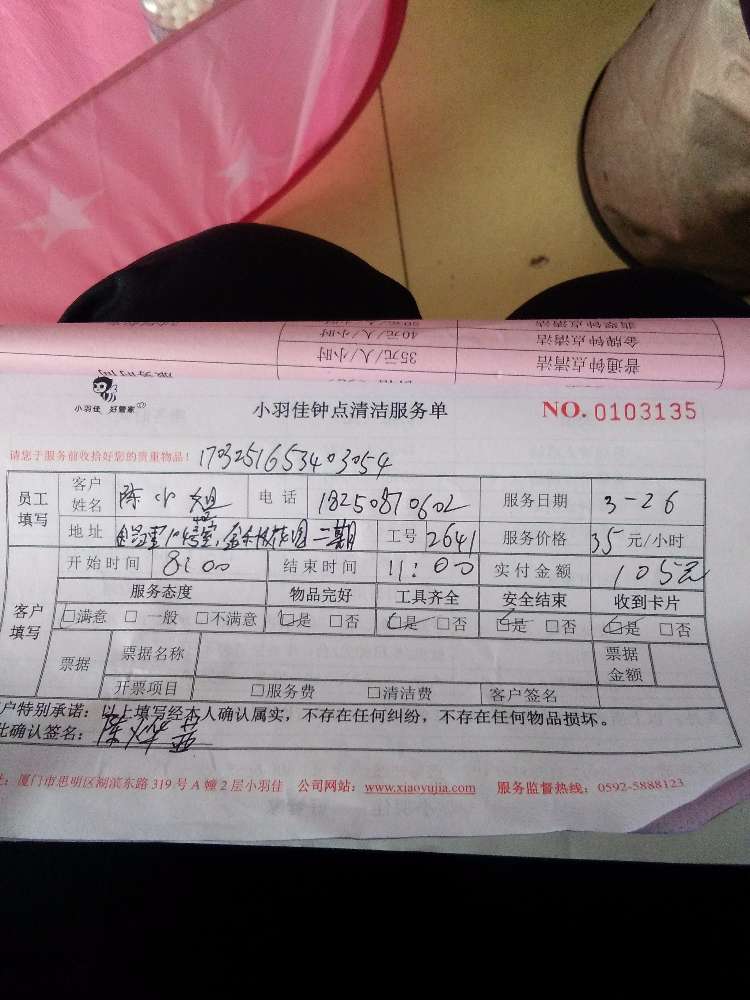 40元/人/小时
金牌钟点清洁
35元/人/小时
普通钟点清洁
小羽佳 好管家
小羽佳钟点清洁服务单
NO. 0103135
请您于服务前收拾好您的贵重物品!
1703251653403054
员工填写
客户姓名 陈小姐 电话 18250870602 服务日期 3-26
地址 二期 工号 2641 服务价格 35 元/小时
客户填写
开始时间 8:00 结束时间 11:00 实付金额 105元
服务态度 物品完好 工具齐全 安全结束 收到卡片
□满意 □一般 □不满意 □是 □否 □是 □否 □是 □否 □是 □否
票据 票据名称 票据金额
开票项目 □服务费 □清洁费 客户签名
户特别承诺:以上填写经本人确认属实,不存在任何纠纷,不存在任何物品损坏。
此确认签名:陈
厦门市思明区湖滨东路319号A幢2层小羽佳 公司网站:www.xiaoyujia.com 服务监督热线:0592-5888123